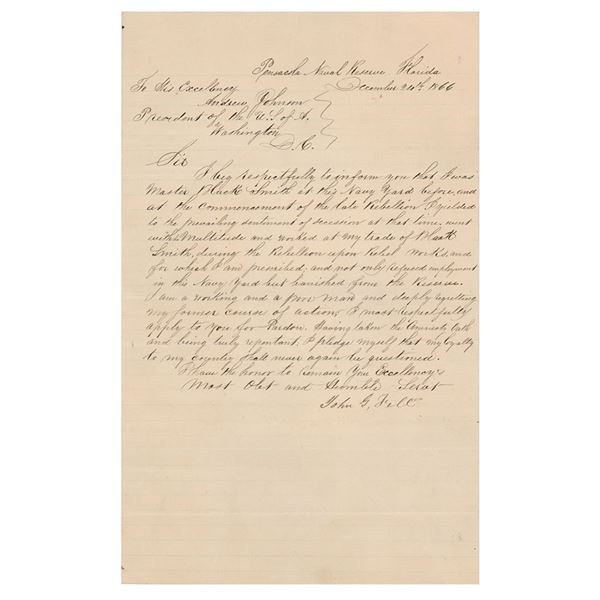 Pensacola Naval Reserve Florida
December 24th 1866
To His Excellency
Andrew Johnson
President of the U.S. of A.
Washington
D.C.
Sir
I beg respectfully to inform you that I was
Master Black Smith at this Navy Yard before, and
at the commencement of the late Rebellion I yielded
to the prevailing sentiment of secession at that time, went
with Multitude and worked at my trade of Black
Smith, during the Rebellion upon Rebel works, and
for which I am proscribed; and not only refused employment
in this Navy Yard but banished from the Reserve.
I am a working and a poor man and deeply regretting
my former course of action, I most respectfully
apply to you for Pardon. Having taken the Amnesty Oath
and being truly repentant, I pledge myself that my loyalty
to my country shall never again be questioned.
I have the honor to remain Your Excellency's
Most Obt and Humble Servt
John G.